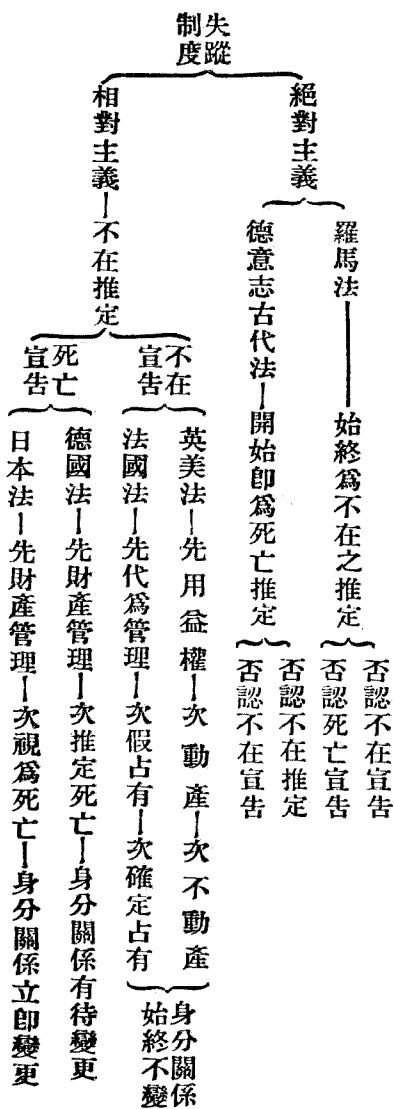 失蹤
制度
絕對主義
羅馬法
始終爲不在之推定
否認不在宣告
否認死亡宣告
德意志古代法
開始卽爲死亡推定
否認不在推定
否認不在宣告
相對主義
不在推定
不在
宣告
英美法
先用益權
次動產
次不動產
法國法
先代爲管理
次假占有
次確定占有
身分關係
始終不變
死亡
宣告
德國法
先財產管理
次推定死亡
身分關係有待變更
日本法
先財產管理
次視爲死亡
身分關係立卽變更